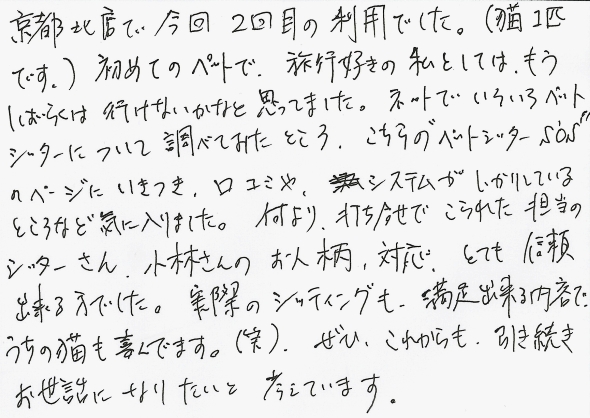 京都北店で今回2回目の利用でした。(猫1匹
です。)初めてのペットで、旅行好きの私としては、もう
しばらくは行けないかなと思ってました。ネットでいろいろペット
シッターについて調べてみたところ、こちらの"ペットシッターSOS"
のページにいきつき、口コミや、システムがしっかりしている
ところなど気に入りました。何より、打ち合せでこられた担当の
シッターさん、小林さんのお人柄、対応、とても信頼
出来る方でした。実際のシッティングも、満足出来る内容で、
うちの猫も喜んでます。(笑)、ぜひ、これからも、引き続き
お世話になりたいと考えています。